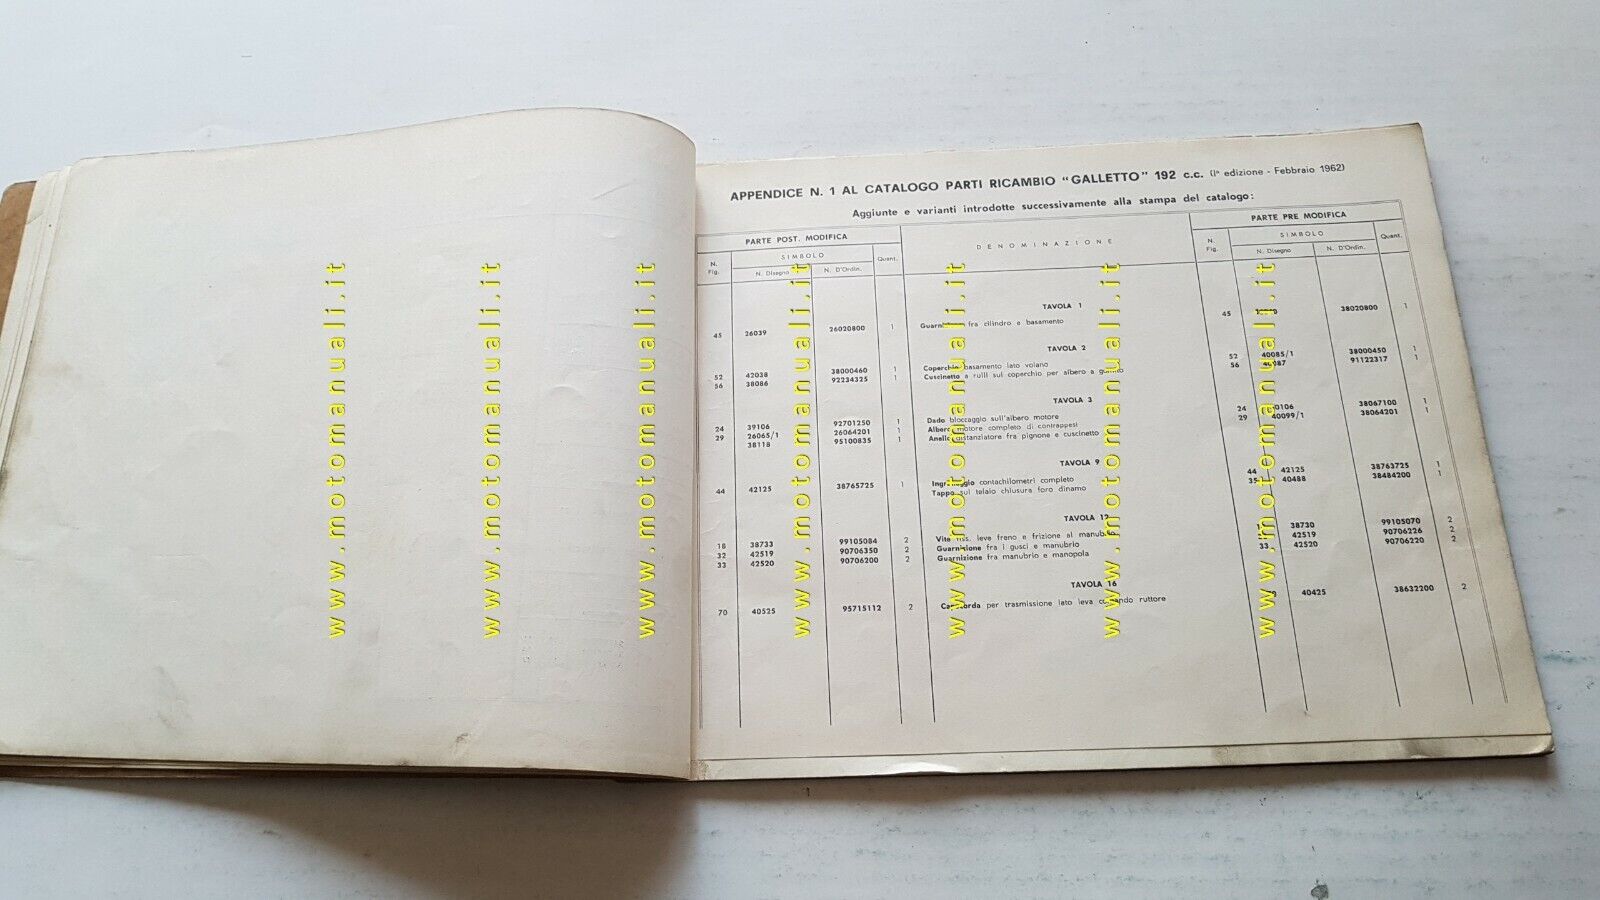 APPENDICE N. 1 AL CATALOGO PARTI RICAMBIO "GALLETTO" 192 c.c. (Iª edizione - Febbraio 1962)
Aggiunte e varianti introdotte successivamente alla stampa del catalogo:
PARTE POST. MODIFICA DENOMINAZIONE PARTE PRE MODIFICA
N. Fig. SIMBOLO Quant. N. Fig. SIMBOLO Quant.
N. Disegno N. D'Ordin. N. Disegno N. D'Ordin.
TAVOLA 1
45 26039 26020800 1 fra cilindro e basamento 45 38020800 1
TAVOLA 2
52 42038 38000460 1 Coperchio basamento lato volano 52 40085/1 38000450 1
56 38086 92234325 1 Cuscinetto a rulli sul coperchio per albero a 56 91122317 1
TAVOLA 3
24 39106 92701250 1 Dado bloccaggio sull'albero motore 24 38067100 1
29 26065/1 26064201 1 Albero motore completo di contrappesi 29 40099/1 38064201 1
38118 95100835 1 Anello distanziatore fra pignone e cuscinetto
TAVOLA 9
44 42125 38765725 1 Ingranaggio contachilometri completo 44 42125 38763725 1
Tappo sul telaio chiusura foro dinamo 35 40488 38484200 1
TAVOLA 12
18 38733 99105084 2 Vite fiss. leve freno e frizione al manubrio 38730 99105070 2
32 42519 90706350 2 Guarnizione fra i gusci e manubrio 42519 90706226 2
33 42520 90706200 2 Guarnizione fra manubrio e manopola 33 42520 90706220 2
TAVOLA 16
70 40525 95715112 2 Capocorda per trasmissione lato leva comando ruttore 40425 38632200 2
www.motomanuali.it
www.motomanuali.it
www.motomanuali.it
www.motomanuali.it
www.motomanuali.it
www.motomanuali.it
www.motomanuali.it